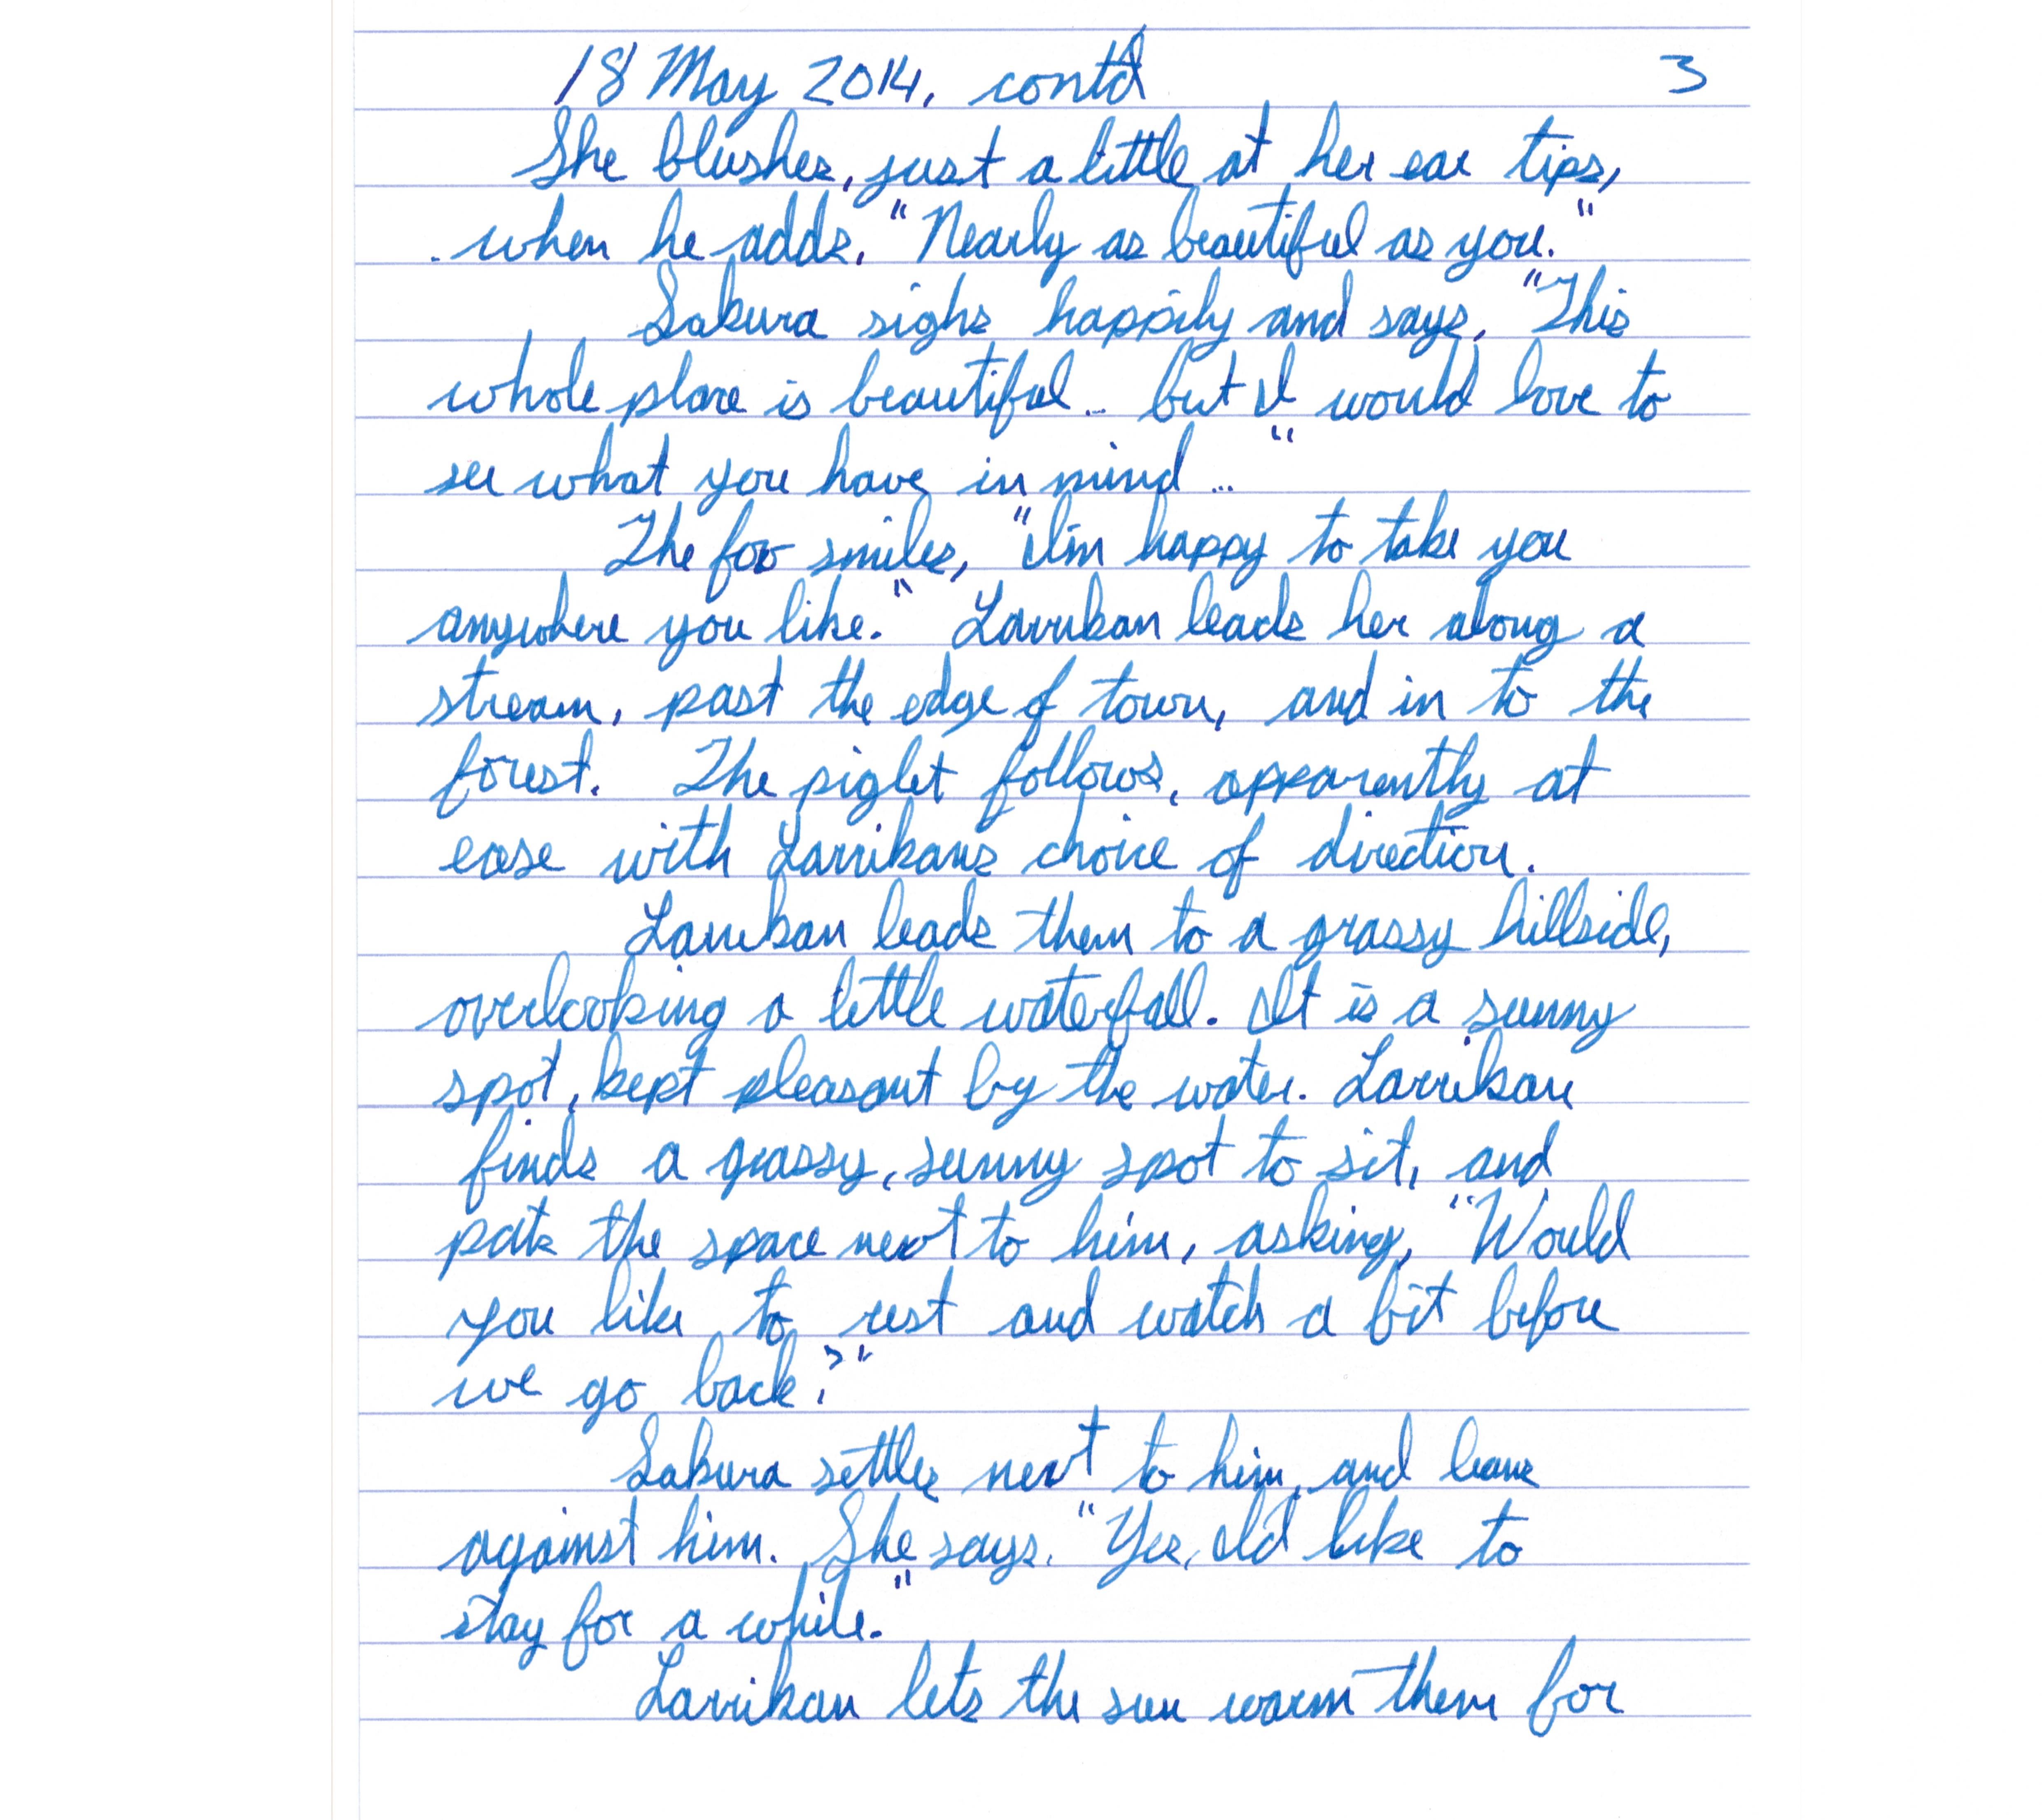 18 May 2014, contd 3
She blushes, just a little at her ear tips,
when he adds, "Nearly as beautiful as you."
Sakura sighs happily and says, "This
whole place is beautiful... but I would love to
see what you have in mind..."
The fox smiles, "I'm happy to take you
anywhere you like." Larrikan leads her along a
stream, past the edge of town, and in to the
forest. The piglet follows, apparently at
ease with Larrikans choice of direction.
Larrikan leads them to a grassy hillside,
overlooking a little waterfall. It is a sunny
spot, kept pleasant by the water. Larrikan
finds a grassy, sunny spot to sit, and
pats the space next to him, asking, "Would
you like to rest and watch a bit before
we go back?"
Sakura settles next to him, and leans
against him. She says, "Yes, I'd like to
stay for a while."
Larrikan lets the sun warm them for